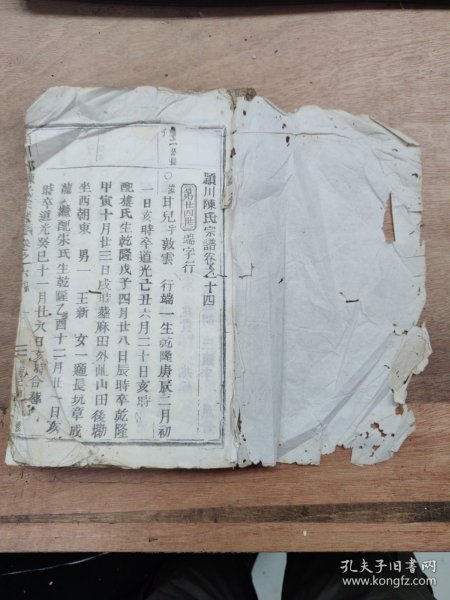 潁川陳氏宗譜卷之十四
第廿四世 端字行
甘兒字敦雲 行端一生乾隆庚辰二月初
一日亥時卒道光己丑六月二十日亥時
配樓氏生乾隆戊子四月廿八日辰時卒乾隆
甲寅十月廿三日戌時墓麻田外山田後勘
坐西朝東 男一 王新 女一適長坑章成
龍 繼配朱氏生乾隆乙酉十二月廿一日亥
時卒道光癸巳十一月廿六日亥時合葬
孔夫子旧书网
www.kongfz.com